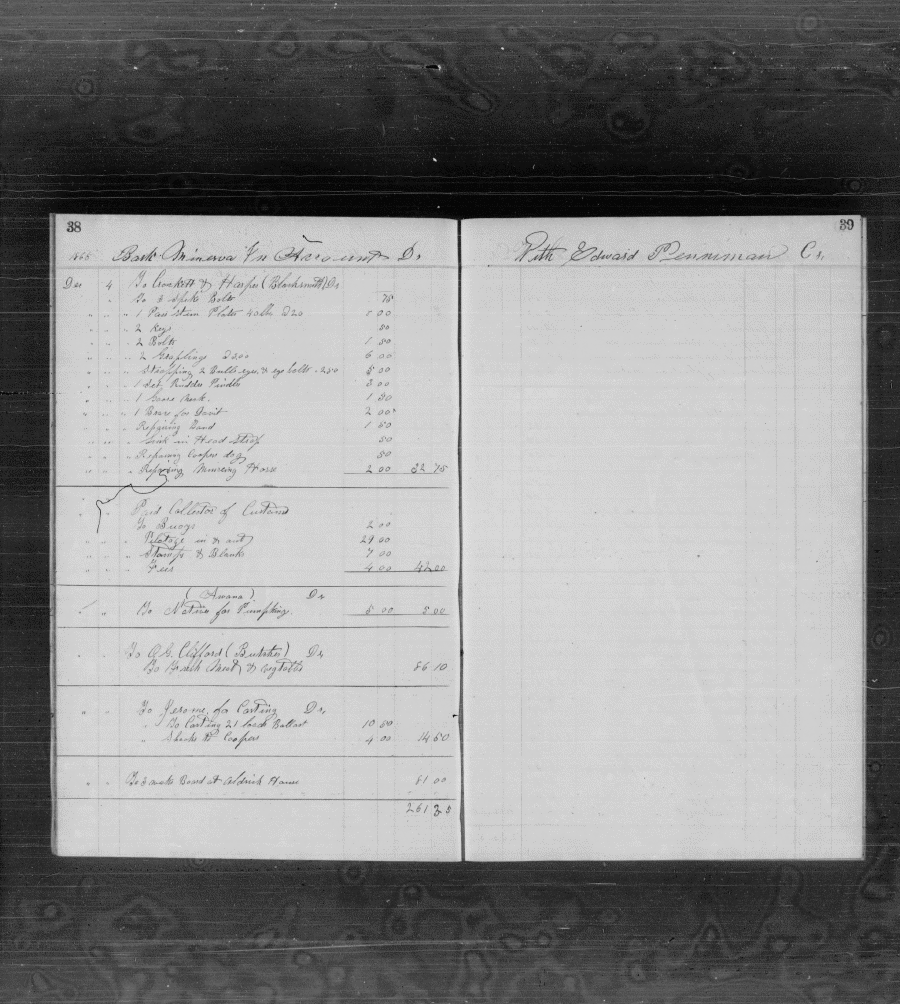 38
Bark Minerva In Account Dr
Dec 4 To Crockett & Harper (Blacksmith) Dr
To 3 Spike Bolts 75
1 Pawl Plate 40 lbs 5 00
2 Keys 50
2 Bolts 1 50
2 Graplings 6 00
Strapping 2 Bulls eyes & eye bolts 5 00
1 Set Rudder Pintles 3 00
1 Goose Neck 1 50
1 Brace for Davit 2 00
Repairing 1 50
Link in Head Strap 50
Repairing Coopers dog 50
Repairing Mincing Horse 2 00 32 75
Paid Collector of Customs
To Buoys 2 00
Pilotage in & out 29 00
Stamps & Blanks 7 00
Fees 4 00 42 00
Dr
To for Pumpkins 5 00 5 00
To A. G. Clifford (Butcher) Dr
To Fresh Meat & vegtables 86 10
To Jerome for Carting Dr
To Carting 21 loads Ballast 10 50
Shooks to Coopers 4 00 14 50
To 3 weeks Board at Aldrich House 81 00
39
With Edward Penniman Cr